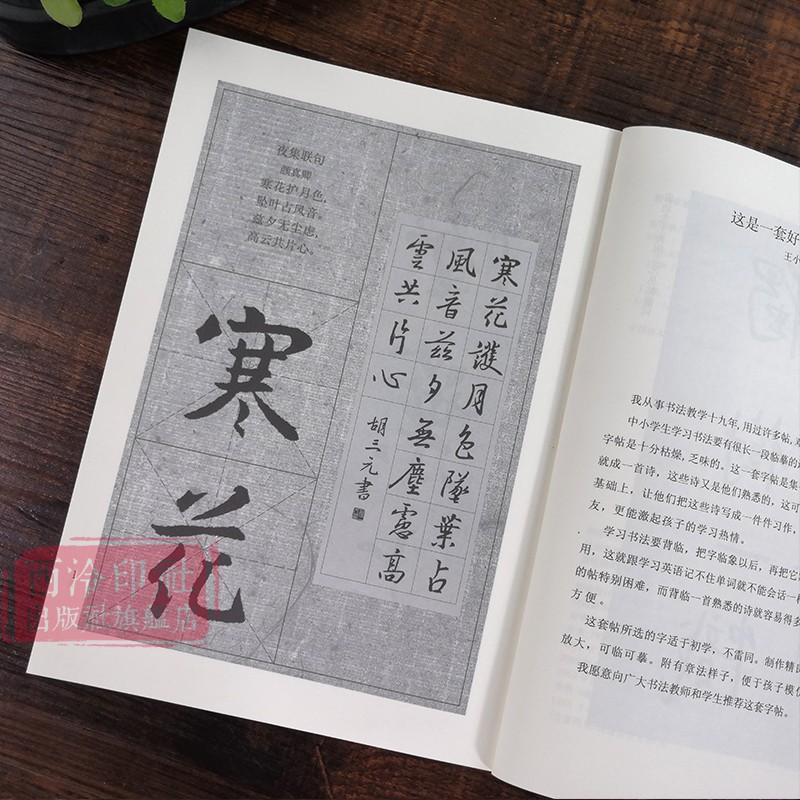 夜集联句
颜真卿
寒花护月色,
坠叶占风音。
兹夕无尘虑,
高云共片心。
寒
花
寒花護月色墜葉占
風音兹夕無塵慮高
雲共片心
胡三元書
西泠印社
出版社旗艦店
这是一套好
王小
我从事书法教学十九年,用过许多帖,
中小学生学习书法要有很长一段临摹的
字帖是十分枯燥,乏味的。这一套字帖是集
就成一首诗,这些诗又是他们熟悉的,这可
基础上,让他们把这些诗写成一件件习作,
友,更能激起孩子的学习热情。
学习书法要背临,把字临象以后,再把它
用,这就跟学习英语记不住单词就不能会话一
的帖特别困难,而背临一首熟悉的诗就容易得多
方便。
这套帖所选的字适于初学,不雷同。制作精
放大,可临可摹。附有章法样子,便于孩子模仿
我愿意向广大书法教师和学生推荐这套字帖。